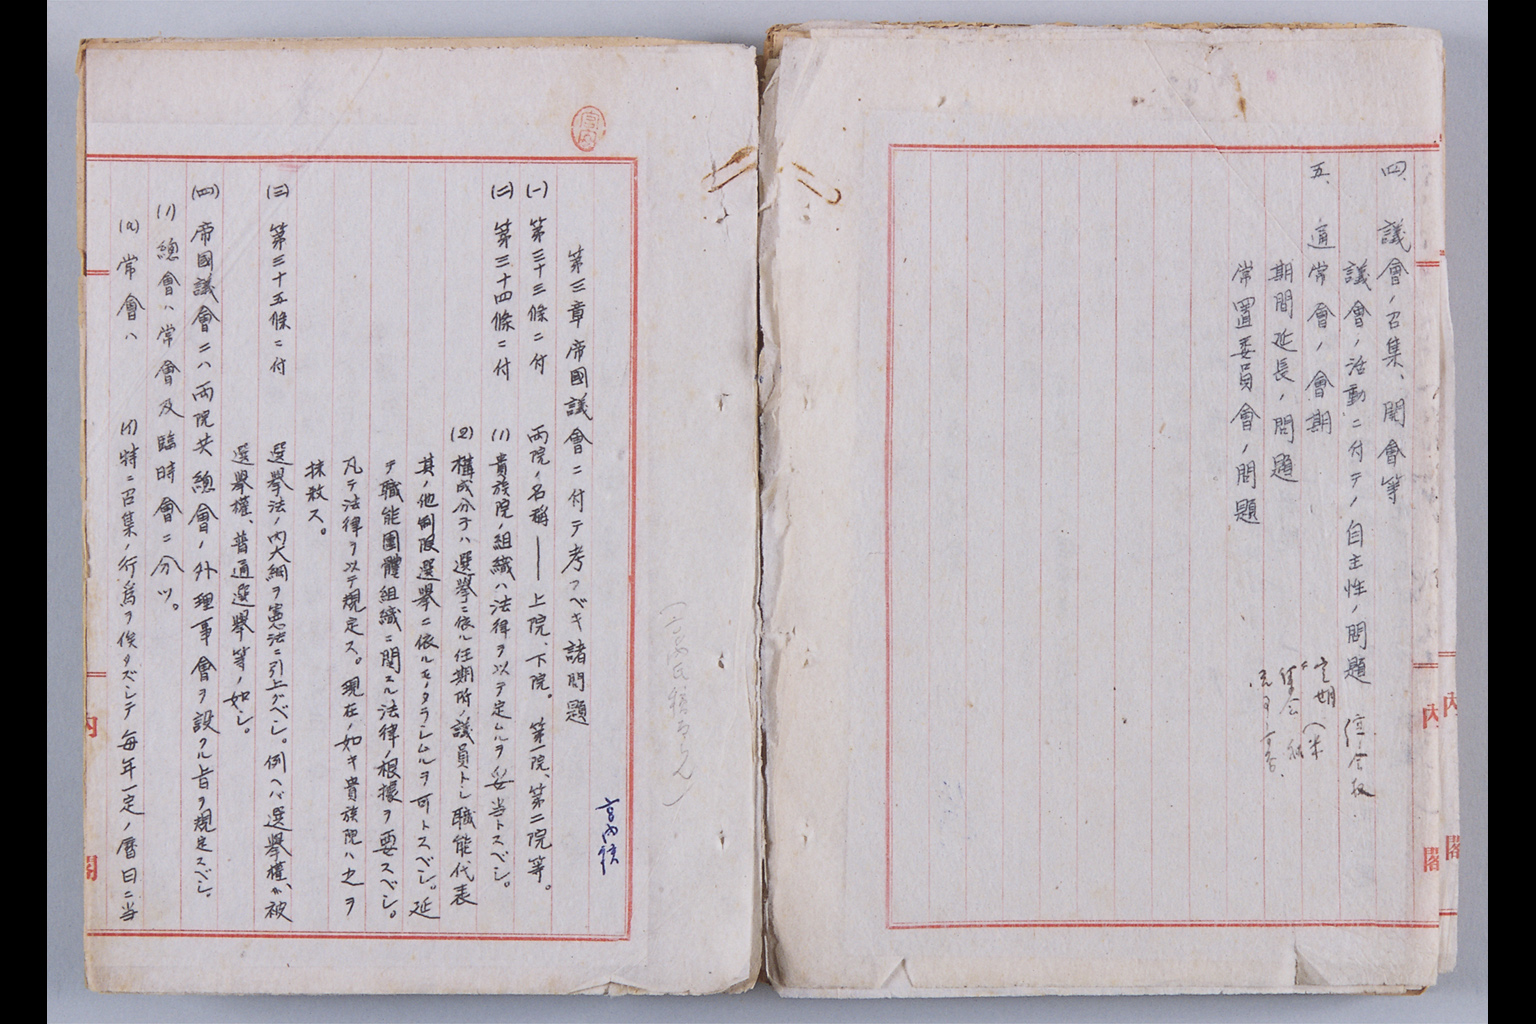 四、議會ノ召集、開會等
議會ノ活動ニ付テノ自主性ノ問題
五、通常會ノ會期
期間延長ノ問題
常置委員會ノ問題
定期（米
内閣
内閣
宮内
第三章帝國議會ニ付テ考フベキ諸問題
(一) 第三十三條ニ付 両院ノ名稱——上院、下院。第一院、第二院等。
(二) 第三十四條ニ付 (1) 貴族院ノ組織ハ法律ヲ以テ定ムルヲ妥当トスベシ。
(2) 構成分子ハ選擧ニ依ル任期附ノ議員トシ職能代表
其ノ他制限選擧ニ依ルモノタラシムルヲ可トスベシ。延
テ職能團體組織ニ関スル法律ノ根據ヲ要スベシ。
凡テ法律ヲ以テ規定ス。現在ノ如キ貴族院ハ之ヲ
抹殺ス。
(三) 第三十五條ニ付 選擧法ノ内大綱ヲ憲法ニ引上グベシ。例ヘバ選擧權、被
選擧權、普通選擧等ノ如シ。
(四) 帝國議會ニハ両院共總會ノ外理事會ヲ設クル旨ヲ規定スベシ。
(1) 總會ハ常會及臨時會ニ分ツ。
(a) 常會ハ (イ) 特ニ召集ノ行爲ヲ俟タズシテ毎年一定ノ暦日ニ当
内
閣